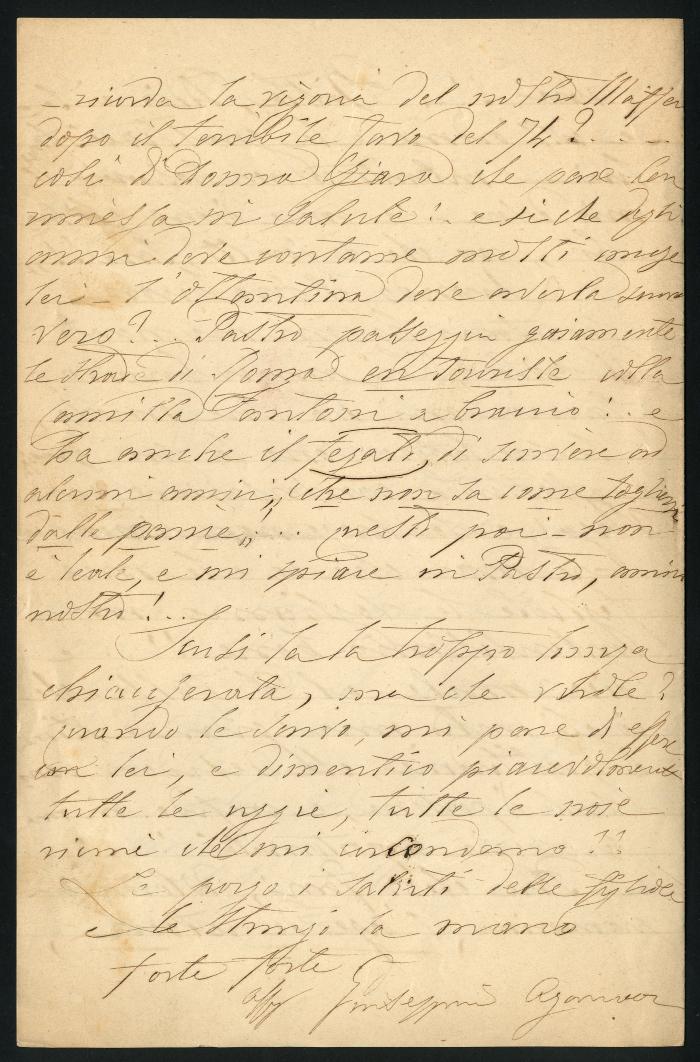 - ricorda la vigoria del nostro Maffei
dopo il terribile favo del 74? . . . -
così di Donna Chiara che pare ben
rimessa in salute! .. e sì che degli
anni deve contarne molti anche
lei - l'ottantina deve averla suona
vero? .. Pastro passeggia gaiamente
le strade di Roma en touriste colla
Camilla Fantoni a braccio! .. e
ha anche il fegato di scrivere ad
alcuni amici, „che non sa come togliersi
dalle panie„! .. questo poi - non
è leale, e mi spiace in Pastro, amico
nostro! ..
Scusi la la troppo lunga
chiaccherata, ma che vuole?
quando le scrivo, mi pare di esser
con lei, e dimentico piacevolmente
tutte le uggie, tutte le noie
che mi circondano!!
Le porgo i saluti delle figliole
Le stringo la mano
forte forte
aff Giuseppe Aganoor